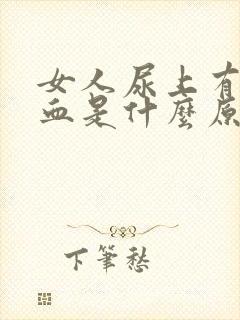 女人尿上有
血是什麼原
下筆愁